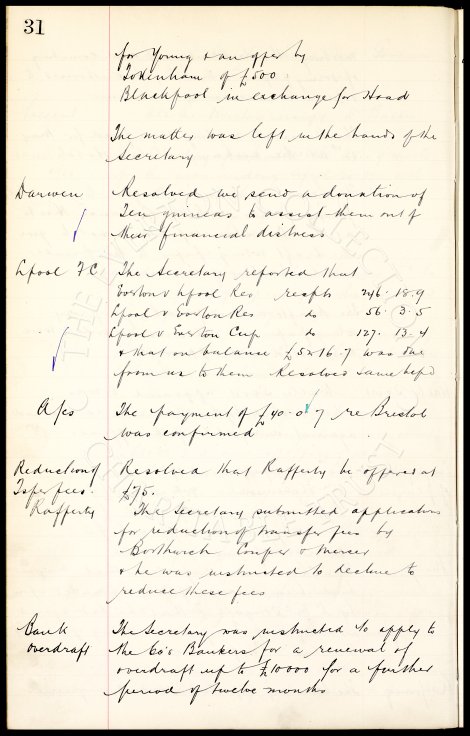 31
for Young & an offer by
Tottenham of £500
Blackpool in exchange for Hoad
The matter was left in the hands of the
Secretary
Darwen Resolved we send a donation of
Ten guineas to assist them out of
their financial distress
Lpool FC The Secretary reported that
Everton v Lpool Res recpts 246. 18. 9
Lpool v Everton Res do 56. 3. 5
Lpool v Everton Cup do 127. 13. 4
& that on balance 16. 7 was due
from us to them Resolved same be pd
A/cs The payment of £40. 0. 7 re Bristol
was confirmed
Reduction of Resolved that Rafferty be offered at
Tsfer fees. £75.
Rafferty The Secretary submitted application
for reduction of transfer fees by
Borthwick Couper & Mercer
& he was instructed to decline to
reduce these fees
Bank The Secretary was instructed to apply to
overdraft the Co's Bankers for a renewal of
overdraft up to £10000 for a further
period of twelve months
THE EVERTON COLLECTION